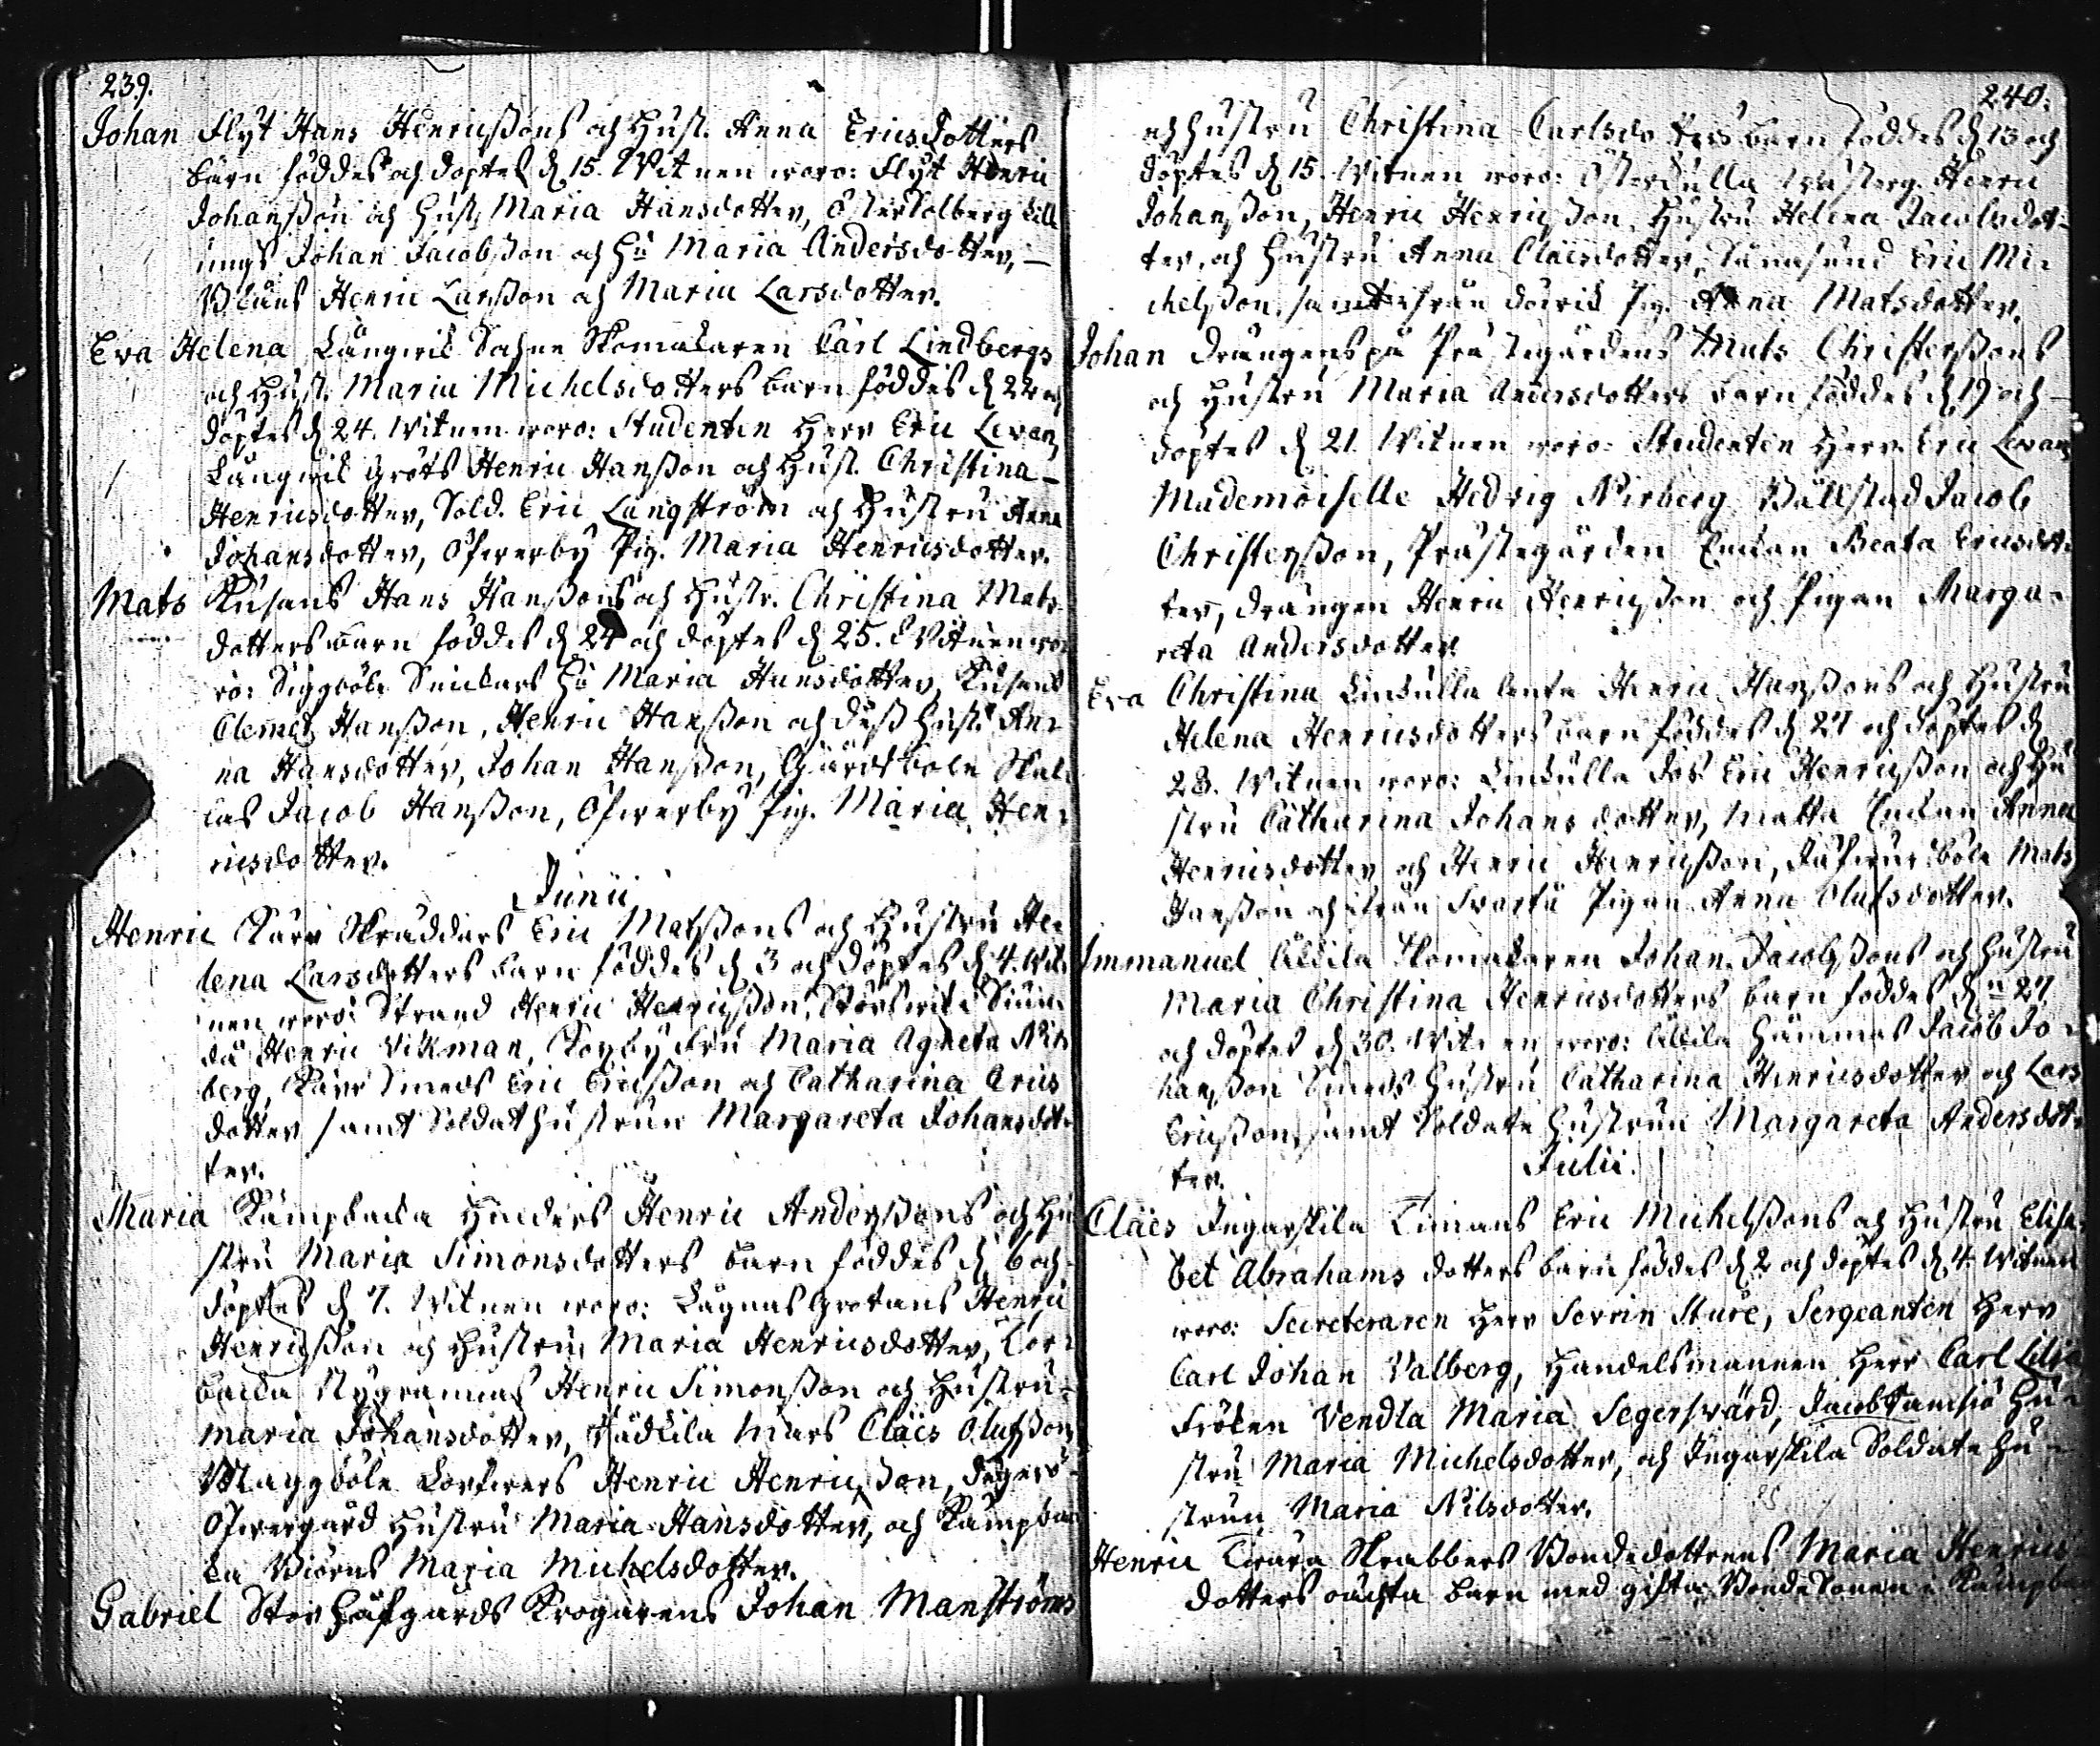 239.
Johan Flyt Hans Henricßons och Hust. Anna Ericsdotters
barn föddes och döptes d. 15. Witnen woro: Flyt Henric
Johanßon och Hust. Maria Hansdotter, Österkolberg
Johan Jacobßon och Hu Maria Andersdotter,
Henric Larßon och Maria Larsdotter.
Eva Helena Långwik Skomakaren Carl Lindbergs
och Hust. Maria Michelsdotters barn föddes d. 22 och
döptes d. 24. Witnen woro: Studenten Herr Eric Levan,
Långwik Gröts Henric Hanßon och Hust. Christina
Henricsdotter, Sold. Eric Långström och Hustru Anna
Johansdotter, Öfwerby Pig. Maria Henricsdotter.
Mats Kusans Hans Hanßons och Hustr. Christina Mats
dotters barn föddes d. 24 och döptes d. 25. Witnen wo
ro: Siggböle Hu Maria Hansdotter, Kusans
Clemet Hanßon, Henric Hanßon och deß Hust. An
na Hansdotter, Johan Hanßon, Gärdsböle
Jacob Hanßon, Öfwerby Pig. Maria Hen
ricsdotter.
Junii
Henric Kärr Skräddars Eric Matsßons och Hustru He
lena Larsdotters barn föddes d. 3 och döptes d. 4. Wit
nen woro: Strand Henric Henricßon,
Henric Vikman, Fru Maria Agneta Nir
berg, Kärr Smeds Eric Ericßon och Catharina Erics
dotter samt Soldathustrun Margareta Johansdot
ter.
Maria Kämpbacka Henric Anderßons och Hu
stru Maria Simonsdotters barn föddes d. 6 och
döptes d. 7. Witnen woro: Lägnäs Grotans Henric
Henricßon och Hustru Maria Henricsdotter, Tor
backa Nygrannas Henric Simonßon och Hustru
Maria Johansdotter, Rådkila Mårs Cläes Olufßon,
Maggböle Henric Henricßon,
Öfwergård Hustru Maria Hansdotter, och Kämpbac
ka Biörns Maria Michelsdotter.
Gabriel Stor Håfgårds Krögarens Johan Manströms
240.
och hustru Christina Carlsdotters barn föddes d. 13 och
döptes d. 15. Witnen woro: Österkulla Henric
Johanßon, Henric Henricßon, Hustru Helena Jacobsdot
ter, och Hustru Anna Cläesdotter, Eric Mi
chelßon, samt ifrån Pig. Anna Matsdotter.
Johan Drängens på Prästegården Mats Christerßons
och Hustru Maria Andersdotters barn föddes d. 19 och
döptes d. 21. Witnen woro: Studenten Herr Eric Levan,
Mademoiselle Hedvig Nirberg, Jacob
Christerßon, Prästegården Enkan Beata Ericsdot
ter, drängen Henric Henricßon och Pigan Marga
reta Andersdotter.
Eva Christina Linkulla Henric Hanßons och Hustru
Helena Henricsdotters barn föddes d. 27 och döptes d.
28. Witnen woro: Linkulla Eric Henricßon och Hu
stru Catharina Johansdotter, Matta Enkan Anna
Henricsdotter och Henric Henricßon, Mats
Hanßon och ifrån Svartå Pigan Anna Olufsdotter.
Immanuel Älkila Skomakaren Johan Jacobßons och Hustru
Maria Christina Henricsdotters barn föddes d. 27
och döptes d. 30. Witnen woro: Älkila Hammas Jacob Jo
hanßon Smeds Hustru Catharina Henricsdotter och Lars
Ericßon, samt Soldate hustrun Margareta Andersdot
ter.
Julii.
Cläes Ingarskila Timans Eric Michelßons och Hustru Elisa
bet Abrahams dotters barn föddes d. 2 och döptes d. 4. Witnen
woro: Secreteraren Herr Sture, Sergeanten Herr
Carl Johan Valberg, Handelsmannen Herr Carl Lilja
Fröken Vendla Maria Segersvärd, Jacob Ramsiö Hu
stru Maria Michelsdotter, och Ingarskila Soldate Hu
strun Maria Nilsdotter.
Henric Skrabbers Bondedottrens Maria Henrics
dotters oächta barn med gifta Bonde Sonen i Kämpbac